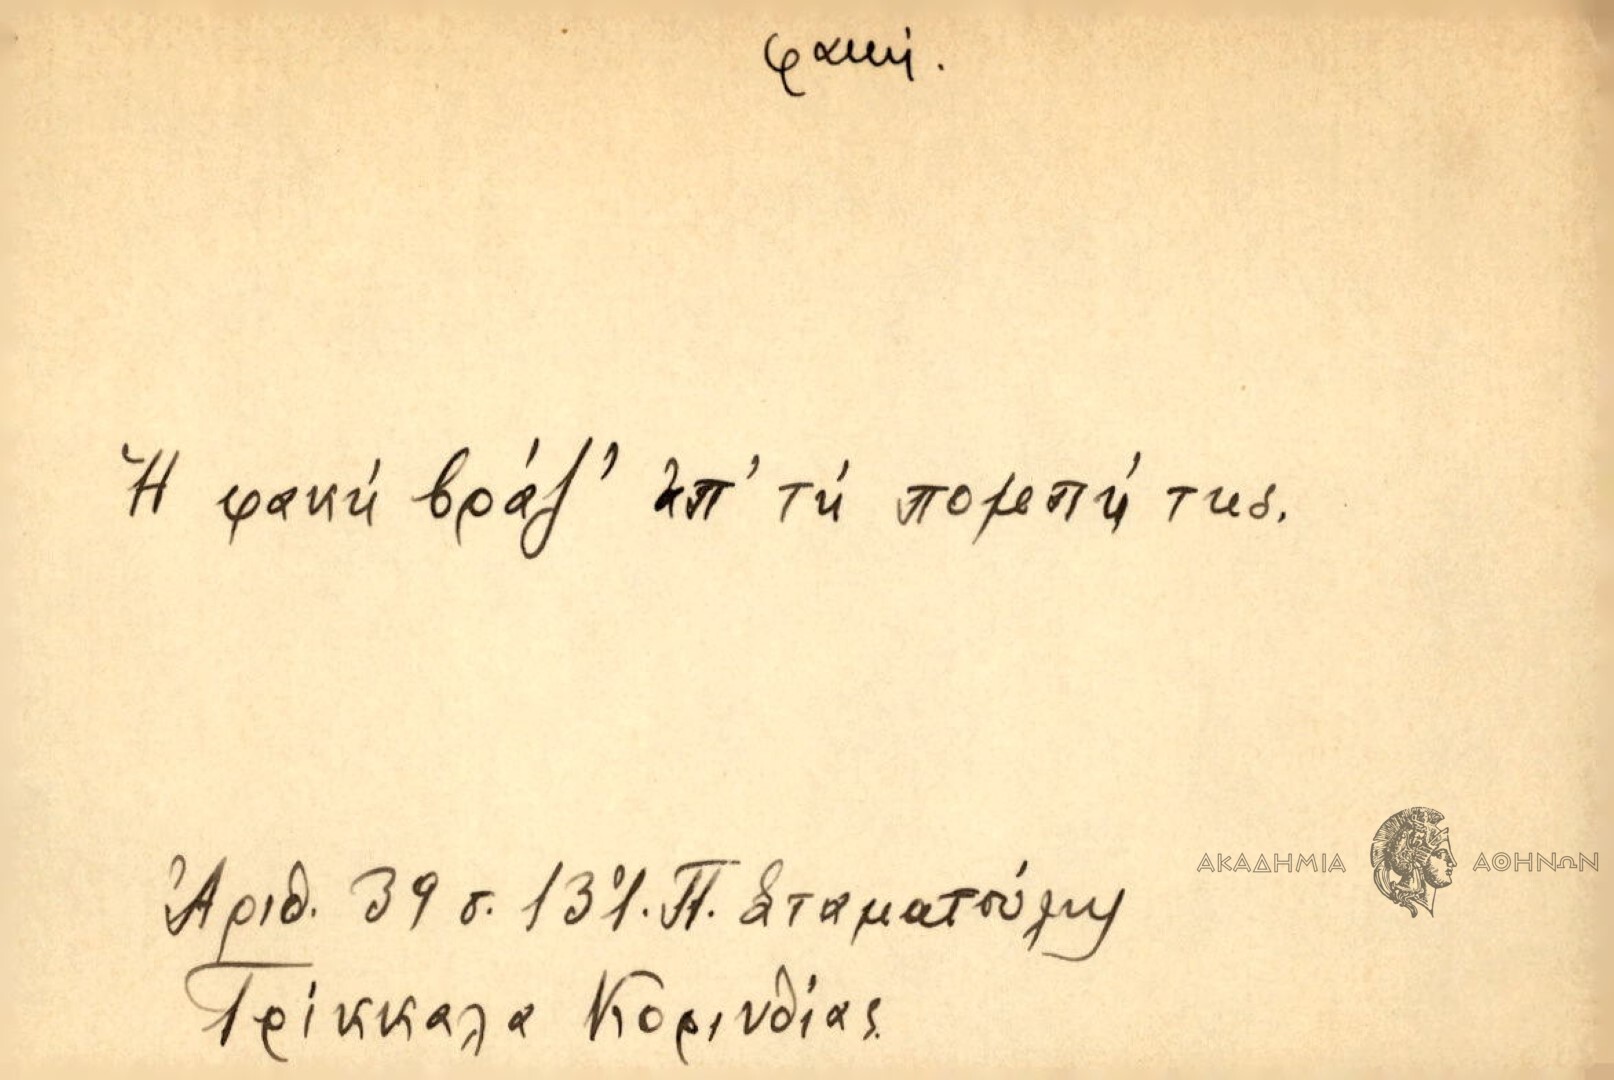 φακή.
Ἡ φακή βράζ' ἀπ' τή πομπή της.
ΑΚΑΔΗΜΙΑ ΑΘΗΝΩΝ
Ἀριθ. 39 σ. 131. Π. Σταματούλη
Τρίκκαλα Κορινθίας